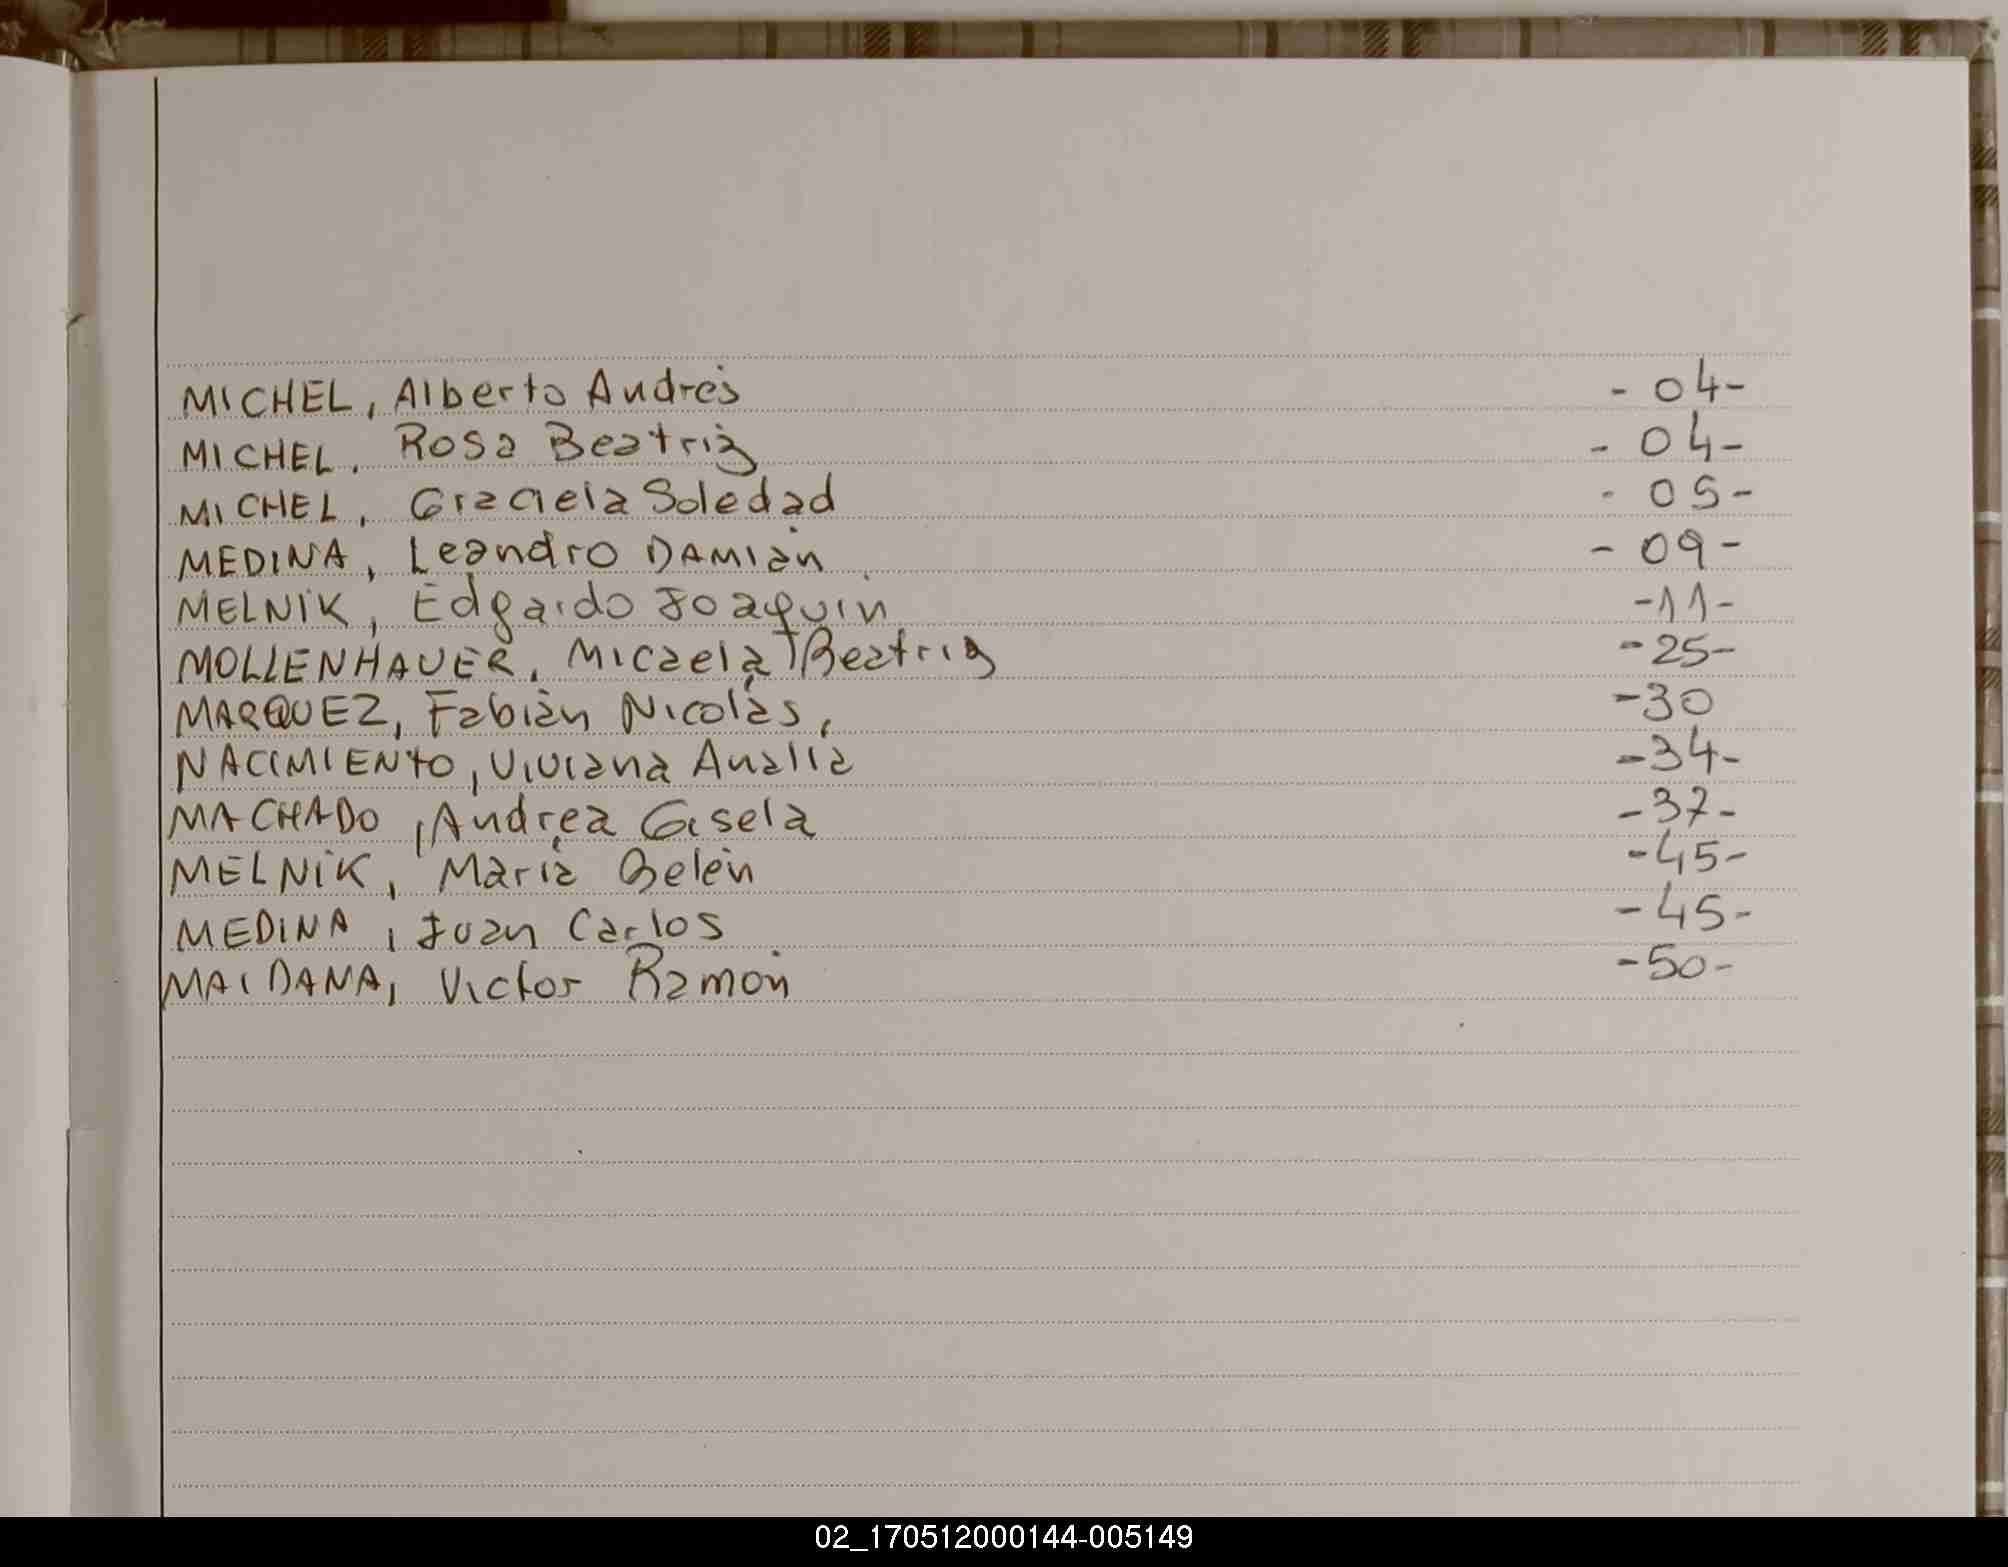 MICHEL, Alberto Andrés - 04-
MICHEL, Rosa Beatriz - 04-
MICHEL, Graciela Soledad - 05-
MEDINA, Leandro DAMIán - 09-
MELNIK, Edgardo Joaquín -11-
MOLLENHAUER, Micaela Beatriz -25-
MARQUEZ, Fabián Nicolás, -30
NACIMIENTO, Viviana Analía -34-
MACHADO, Andrea Gisela -37-
MELNIK, María Belén -45-
MEDINA, Juan Carlos -45-
MAIDANA, Victor Ramón -50-
02_170512000144-005149